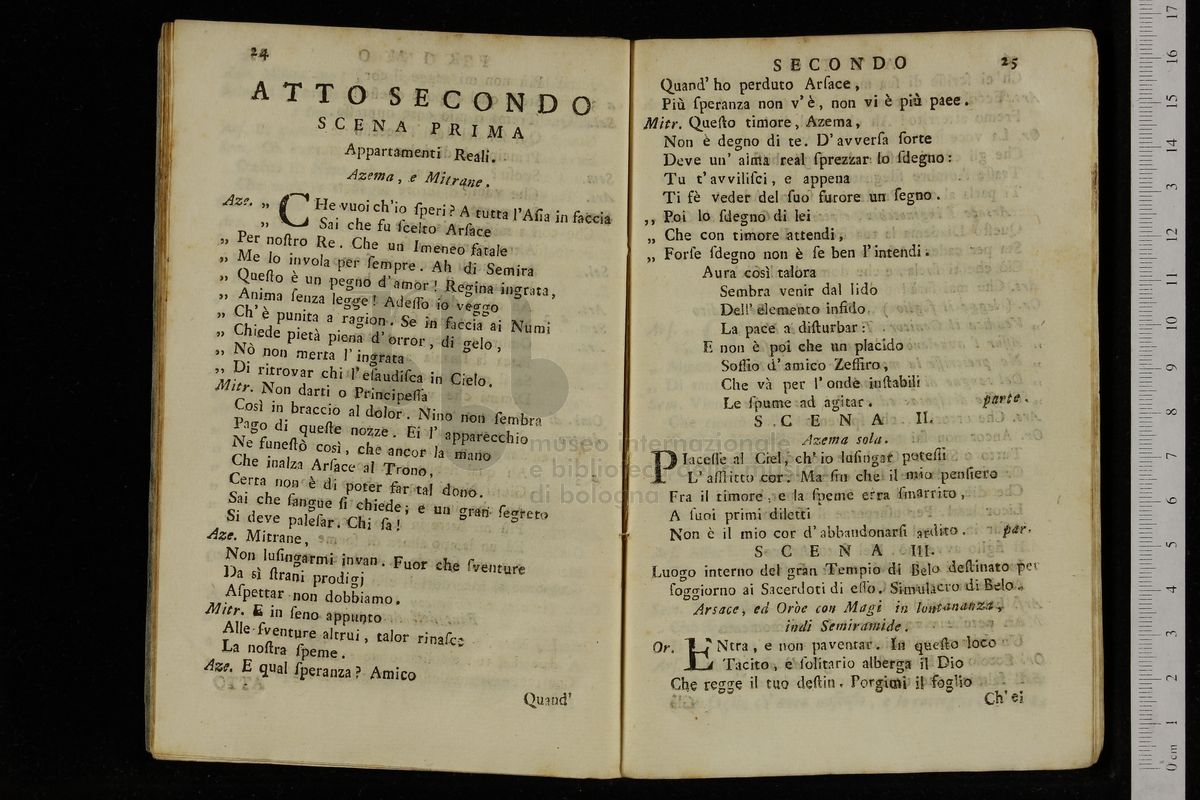 24
ATTO SECONDO
SCENA PRIMA
Appartamenti Reali.
Azema, e Mitrane.
Aze. „ CHe vuoi ch'io ſperi? A tutta l'Aſia in faccia
„ Sai che fu ſcelto Arſace
„ Per noſtro Re. Che un Imeneo fatale
„ Me lo invola per ſempre. Ah di Semira
„ Queſto è un pegno d'amor! Regina ingrata,
„ Anima ſenza legge! Adeſſo io veggo
„ Ch'è punita a ragion. Se in faccia ai Numi
„ Chiede pietà piena d'orror, di gelo,
„ Nò non merta l'ingrata
„ Di ritrovar chi l'eſaudiſca in Cielo.
Mitr. Non darti o Principeſſa
Così in braccio al dolor. Nino non ſembra
Pago di queſte nozze. Ei l'apparecchio
Ne funeſtò così, che ancor la mano
Che inalza Arſace al Trono,
Certa non è di poter far tal dono.
Sai che ſangue ſi chiede; e un gran ſegreto
Si deve paleſar. Chi ſa!
Aze. Mitrane,
Non luſingarmi invan. Fuor che ſventure
Da sì ſtrani prodigj
Aſpettar non dobbiamo.
Mitr. E in ſeno appunto
Alle ſventure altrui, talor rinaſce
La noſtra ſpeme.
Aze. E qual ſperanza? Amico
Quand'
SECONDO 25
Quand' ho perduto Arſace,
Più ſperanza non v'è, non vi è più pace.
Mitr. Queſto timore, Azema,
Non è degno di te. D'avverſa ſorte
Deve un' alma real ſprezzar lo ſdegno:
Tu t'avviliſci, e appena
Ti fè veder del ſuo furore un ſegno.
„ Poi lo ſdegno di lei
„ Che con timore attendi,
„ Forſe ſdegno non è ſe ben l'intendi.
Aura così talora
Sembra venir dal lido
Dell' elemento infido
La pace a diſturbar:
E non è poi che un placido
Soffio d'amico Zeffiro,
Che và per l'onde inſtabili
Le ſpume ad agitar. parte.
SCENA II.
Azema sola.
PIaceſſe al Ciel, ch'io luſingar poteſſi
L'afflitto cor. Ma fin che il mio penſiero
Fra il timore, e la ſpeme erra ſmarrito,
A ſuoi primi diletti
Non è il mio cor d'abbandonarſi ardito. par.
SCENA III.
Luogo interno del gran Tempio di Belo deſtinato per
ſoggiorno ai Sacerdoti di eſſo. Simulacro di Belo.
Arsace, ed Oròe con Magi in lontananza,
indi Semiramide.
Or. ENtra, e non paventar. In queſto loco
Tacito, e ſolitario alberga il Dio
Che regge il tuo deſtin. Porgimi il foglio
Ch'ei
museo internazionale
e biblioteca della musica
di bologna
0 cm 1 2 3 4 5 6 7 8 9 10 11 12 13 14 15 16 17